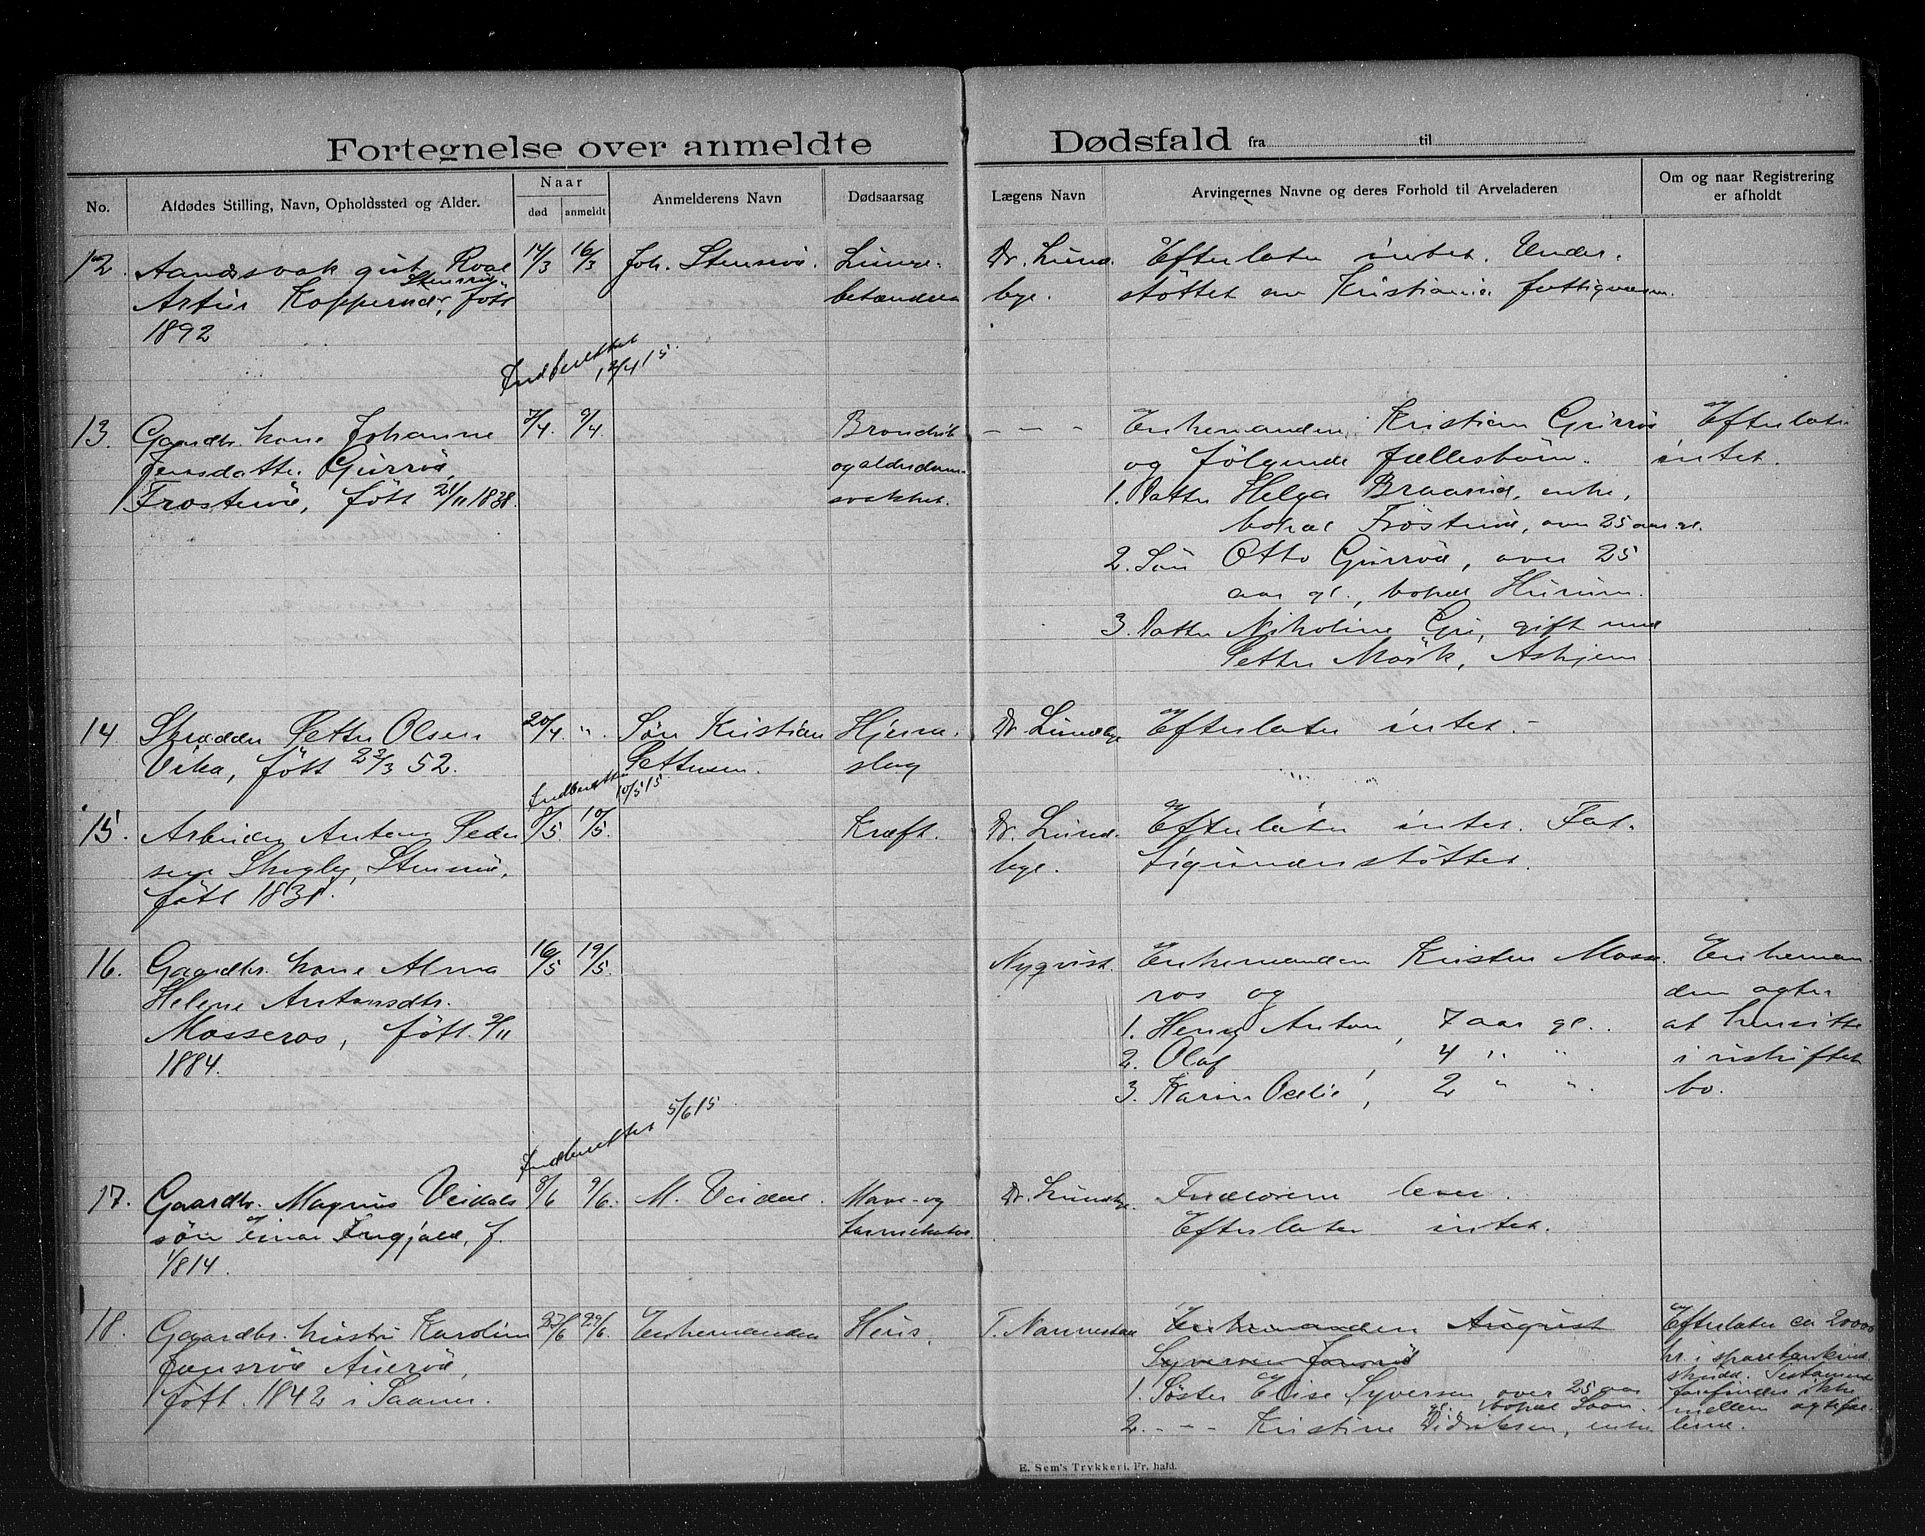 Fortegnelse over anmeldte Dødsfald fra til
No.
Afdødes Stilling, Navn, Opholdssted og Alder.
Naar
død anmeldt
Anmelderens Navn
Dødsaarsag
Lægens Navn
Arvingernes Navne og deres Forhold til Arveladeren
Om og naar Registrering
er afholdt
12. Aandssvak gut Roal
Stensrö
Artur Koppernæs, født
1892
14/3 16/3
Joh. Stensrö.
Lunge-
betændelse
Dr. Lund-
bye.
Efterlater intet. Under-
støttet av Kristiania fattigvæsen.
Indberettet
12/4 15.
13. Gaardbr. kone Johanne
Jensdatter Gurröd,
Frosteröd, født 21/11 1838.
7/4 9/4
Bronchit
og alderdoms-
svakhet.
- - -
Enkemanden Kristian Gurrö
og følgende fællesbørn.
1. Datter Helga Braarud, enke,
bopæl Frosteröd, over 25 aar gl.
2. Søn Otto Gurröd, over 25
aar gl., bopæl Hurum.
3. Datter Nikoline Gu, gift med
Petter Mörk, Askjem
Efterlater
intet.
14. Skrædder Petter Olsen
Vika, født 22/3 52.
20/4 "
Søn Kristian
Pettersen.
Hjerne-
slag
Dr. Lundbye
Efterlater intet.
Indberettet
10/5 15
15. Arbeider Anton Peder
sen Skogly, Stensröd,
født 1831.
8/5 10/5
Kræft.
Dr. Lund-
bye.
Efterlater intet. Fat-
tigunderstøttet.
16. Gaardbr. kone Alma
Helene Antonsdtr.
Mosseros, født 9/11
1884.
16/5 19/5
Nyqvist.
Enkemanden Kristen Mosse
ros og
1. Henry Anton, 7 aar gl.
2. Olaf 4 " "
3. Karin Ocelie, 2 " "
Enkeman-
den agter
at hensitte
i uskiftet
bo.
Indberettet 5/6 15
17. Gaardbr. Magnus Veidals
søn Einar Ingjald, f.
1/8 14.
8/6 9/6.
M. Veidal.
Mave- og
tarmkatar
Dr. Lundbye.
Forældrene lever.
Efterlater intet.
18. Gaardbr. hustru Karoline
Jansröd Aueröd,
født 1842 i Saaner.
27/6 29/6.
Enkemanden
Hens.
T. Nannestad
Enkemanden August
Syversen Jansröd
1. Søster Elise Syversen, over 25 aar
gl., bopæl Soon.
2. - - Kristine Didriksen, enke
Efterlater ca 20000
kr. i sparebankind
skudd. Testament
forefindes ikke
mellem ægtefæl-
lerne.
E. Sem's Trykkeri, Fr. hald.